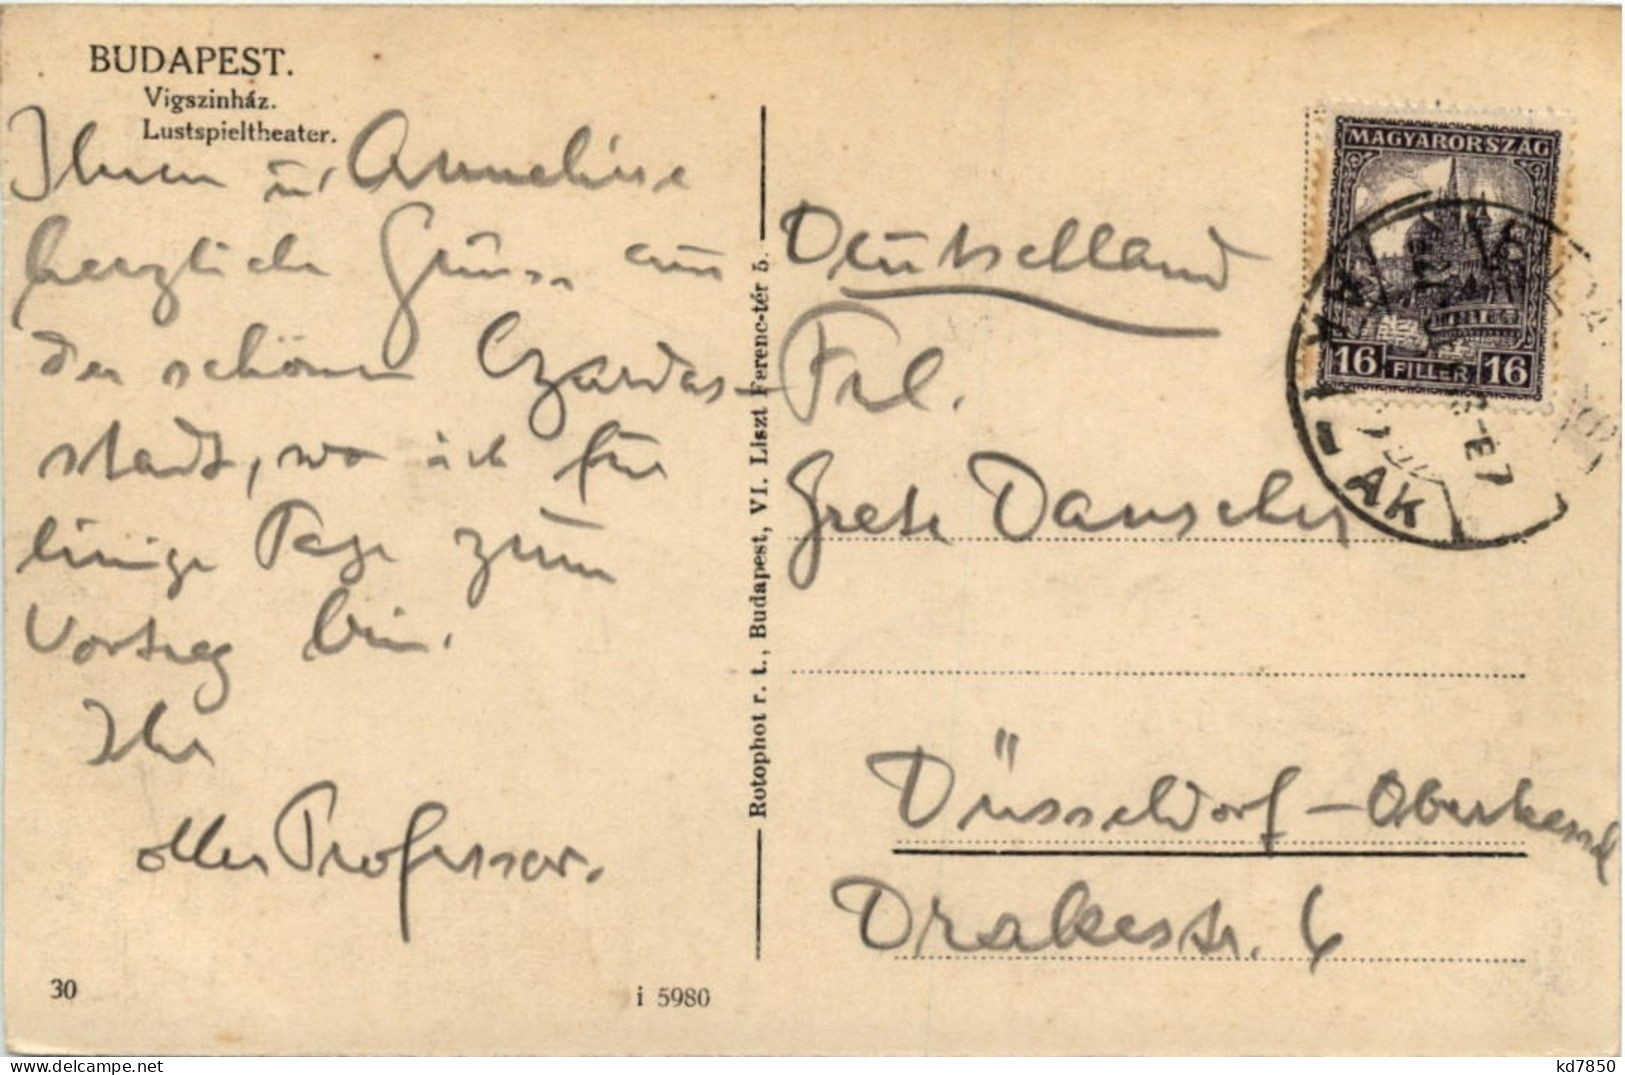 BUDAPEST.
Vigszinház.
Lustspieltheater.
Ihnen u. Anneliese
herzliche Grüsse aus
der schönen Czardas-
stadt, wo ich für
einige Tage zum
Vortrag bin.
Ihr
oller Professor.
30
i 5980
Rotophot r. t., Budapest, VI. Liszt Ferenc-tér 5.
MAGYARORSZÁG
16 FILLÉR 16
Deutschland
Frl.
Grete
Düsseldorf-Oberkassel
Drakestr. 6
kd7850